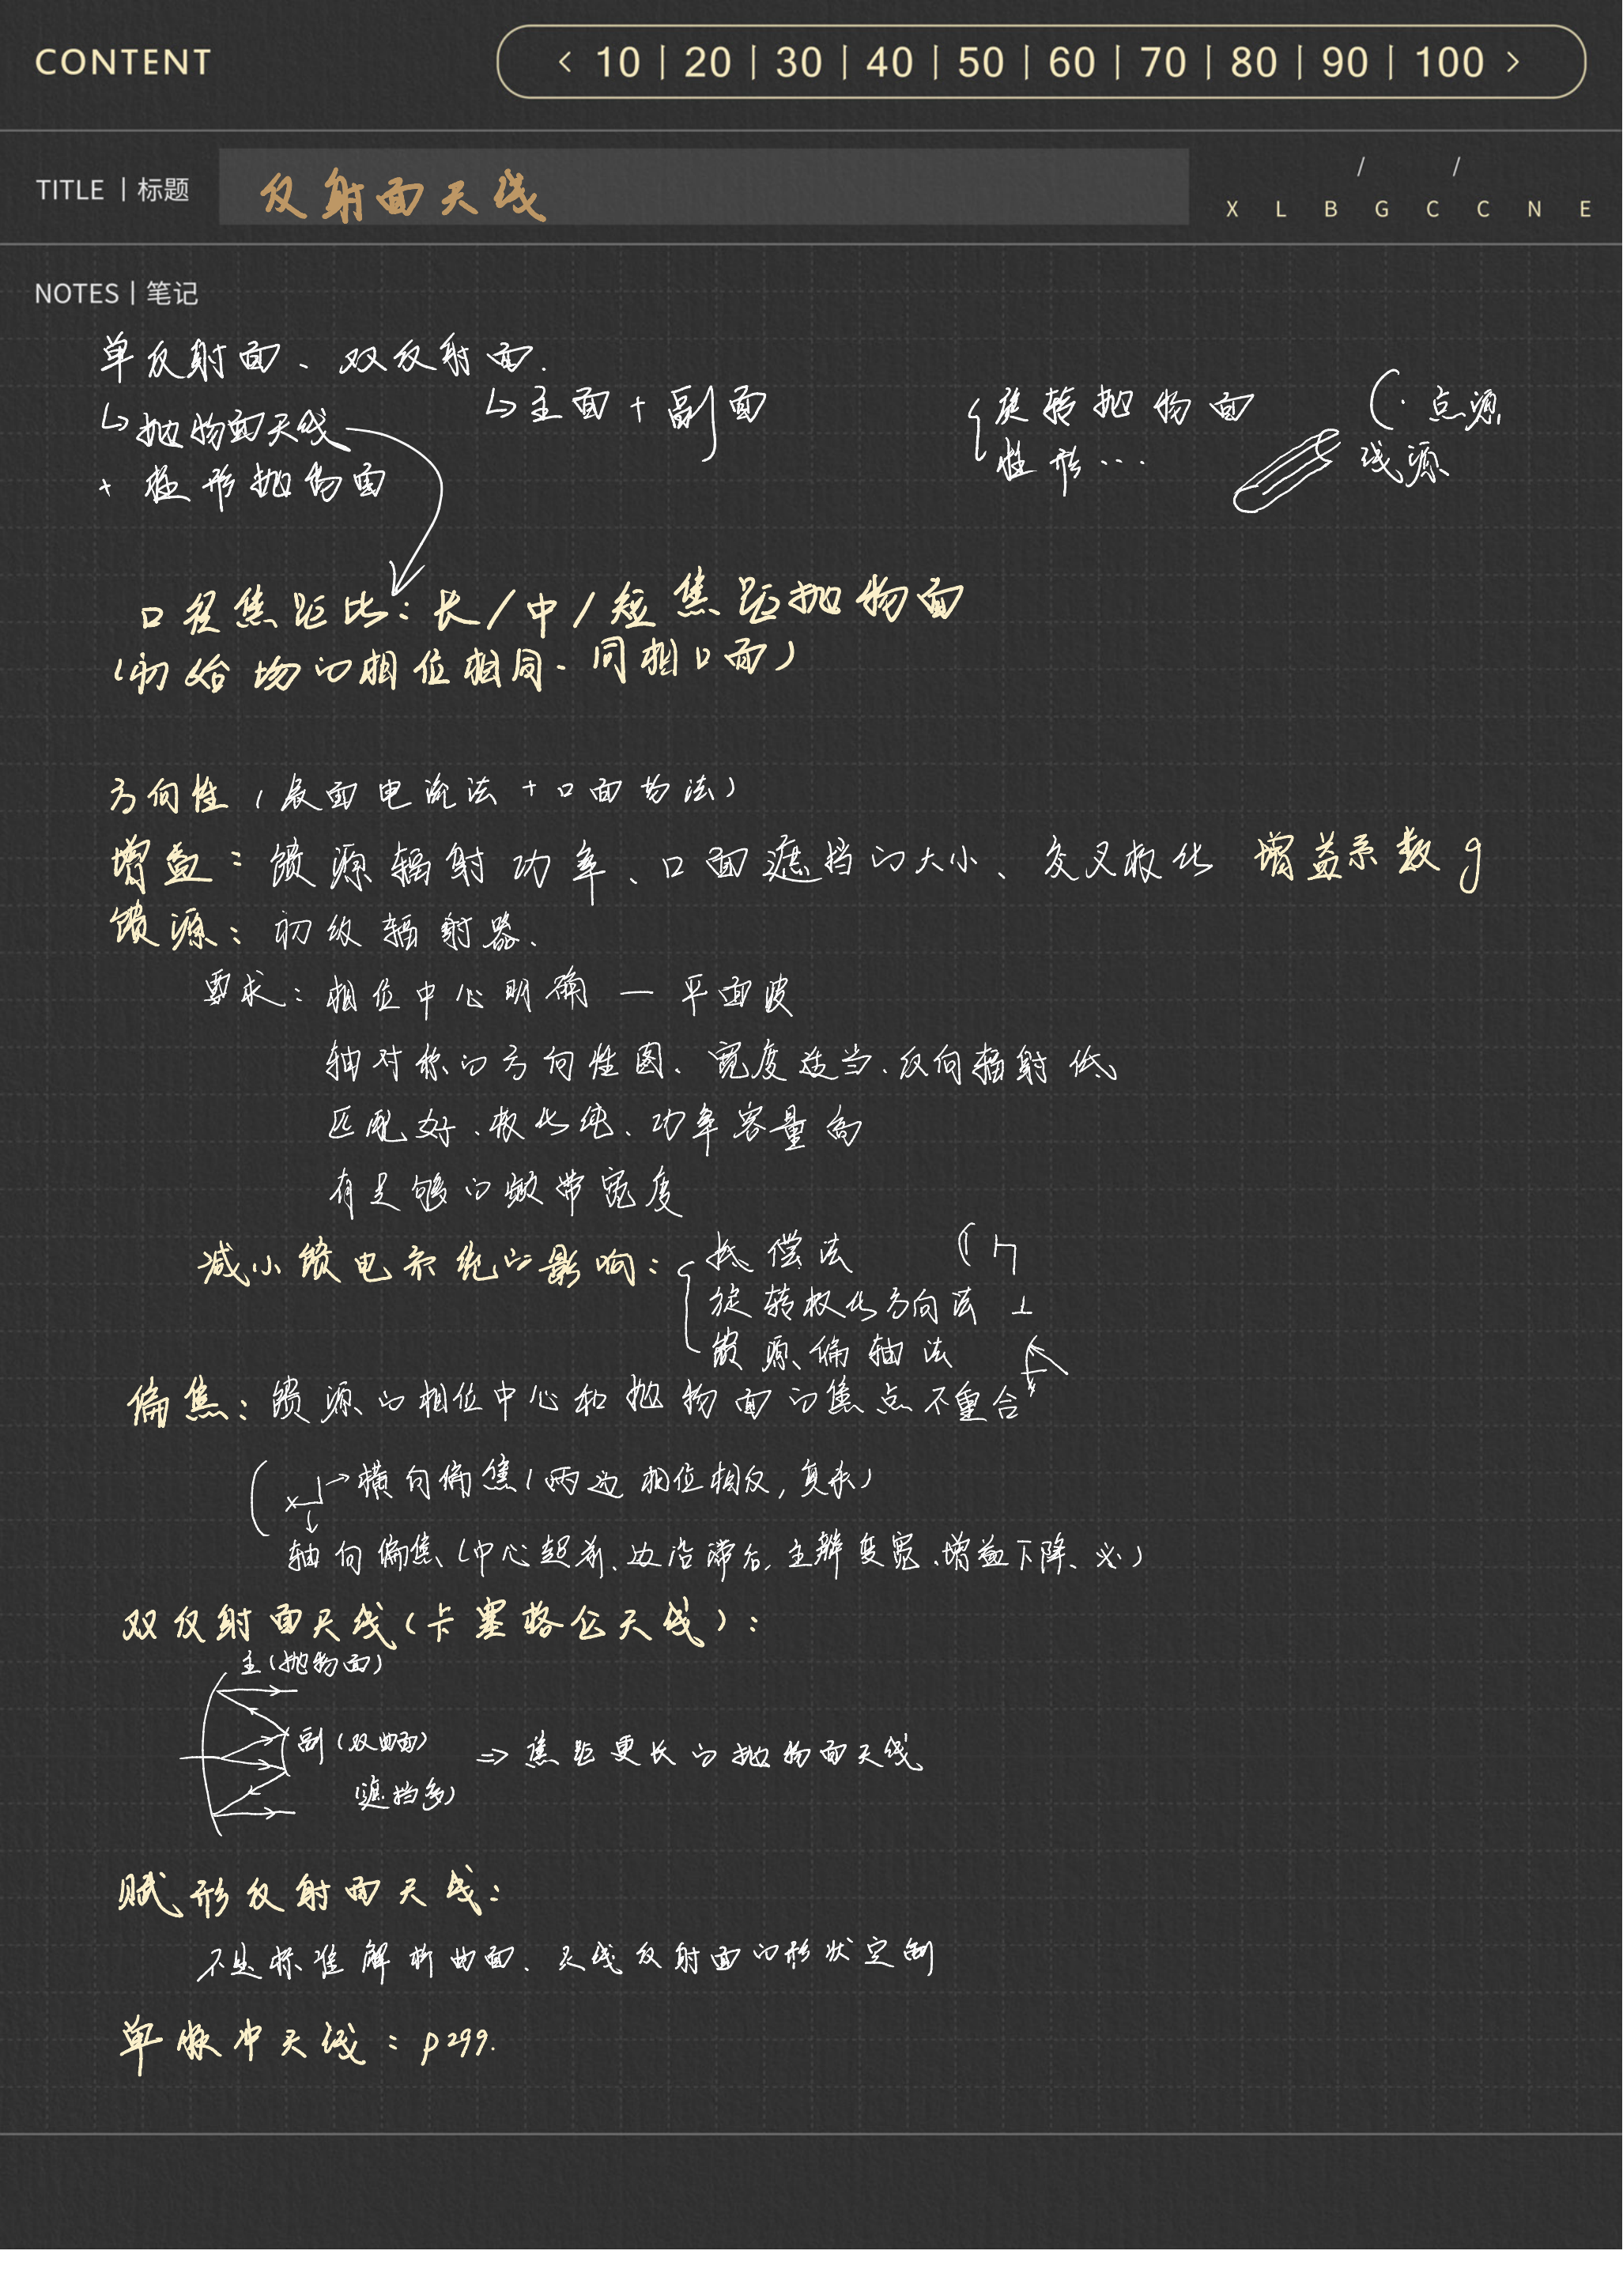 CONTENT
< 10 | 20 | 30 | 40 | 50 | 60 | 70 | 80 | 90 | 100 >
TITLE | 标题 反射面天线
/ /
X L B G C C N E
NOTES | 笔记
单反射面、双反射面.
↳ 抛物面天线
+ 柱形抛物面
↳ 主面 + 副面
旋转抛物面 点源
柱形… 线源
口径焦距比: 长/中/短焦距抛物面
(初始场的相位相同、同相口面)
方向性 (表面电流法 + 口面场法)
增益: 馈源辐射功率、口面遮挡的大小、交叉极化 增益系数 g
馈源: 初级辐射器、
要求: 相位中心明确 — 平面波
轴对称的方向性图、宽度适当、反向辐射低
匹配好、极化纯、功率容量高
有足够的频带宽度
减小馈电系统的影响:
抵偿法
旋转极化方向法 ⊥
馈源偏轴法
偏焦: 馈源的相位中心和抛物面的焦点不重合
→ 横向偏焦 (两边相位相反,)
轴向偏焦 (中心超前、边沿滞后, 主瓣变宽、增益下降、)
双反射面天线 (卡塞格伦天线):
主 (抛物面)
副 (双曲面) ⇒ 焦距更长的抛物面天线
(遮挡多)
赋形反射面天线:
不是标准解析曲面、天线反射面的形状定制
单脉冲天线: p299.